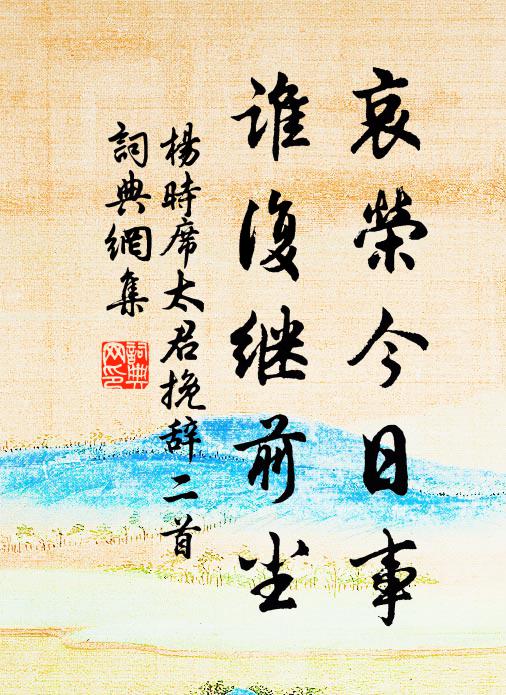 哀榮今日事
谁復继前尘
楊時席太君挽辞二首
詞典網集
詞典网印